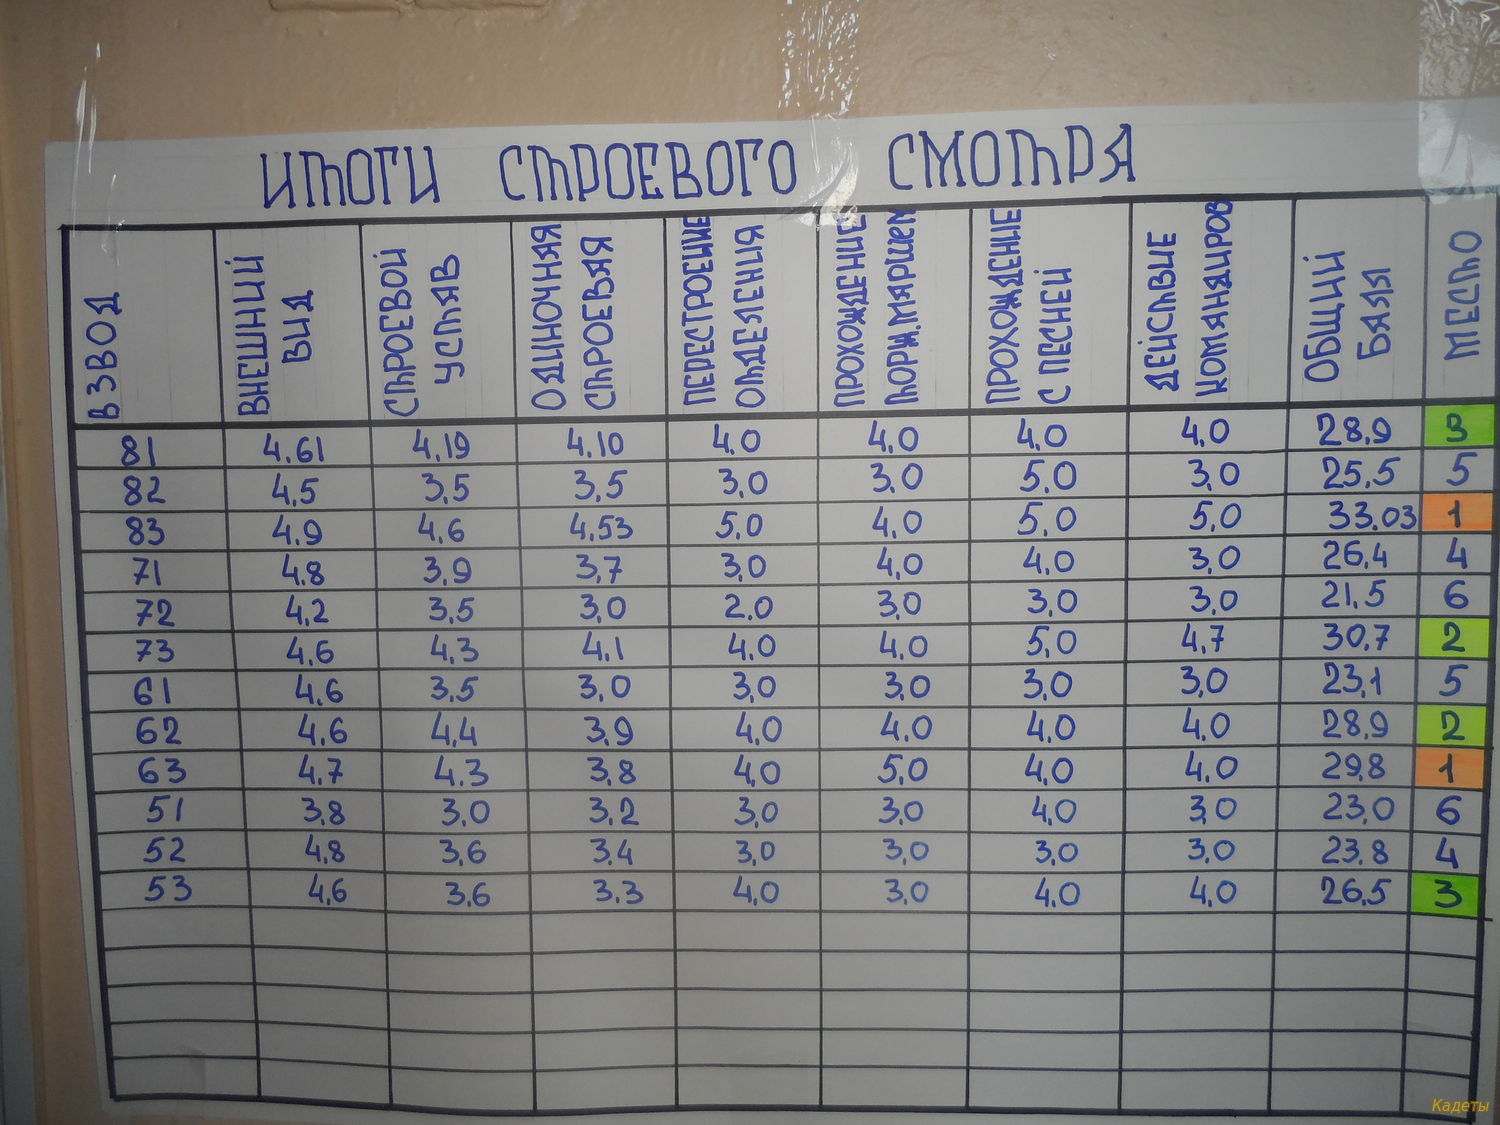 ИТОГИ СТРОЕВОГО СМОТРА
ВЗВОД
ВНЕШНИЙ
ВИД
СТРОЕВОЙ
УСТАВ
ОДИНОЧНАЯ
СТРОЕВАЯ
ПЕРЕСТРОЕНИЕ
ОТДЕЛЕНИЯ
ПРОХОЖДЕНИЕ
ТОРЖ.МАРШЕМ
ПРОХОЖДЕНИЕ
С ПЕСНЕЙ
ДЕЙСТВИЕ
КОМАНДИРОВ
ОБЩИЙ
БАЛЛ
МЕСТО
81 4.61 4.19 4.10 4.0 4,0 4,0 4,0 28,9 3
82 4.5 3,5 3,5 3,0 3,0 5,0 3,0 25,5 5
83 4.9 4,6 4,53 5,0 4,0 5,0 5,0 33,03 1
71 4.8 3,9 3,7 3,0 4,0 4,0 3,0 26,4 4
72 4,2 3,5 3,0 2.0 3,0 3,0 3,0 21,5 6
73 4,6 4,3 4,1 4,0 4,0 5,0 4,7 30,7 2
61 4.6 3,5 3,0 3,0 3,0 3,0 3,0 23,1 5
62 4,6 4,4 3,9 4,0 4,0 4,0 4,0 28,9 2
63 4.7 4.3 3,8 4,0 5,0 4,0 4.0 29,8 1
51 3,8 3,0 3,2 3,0 3,0 4,0 3,0 23,0 6
52 4,8 3,6 3,4 3,0 3,0 3,0 3,0 23,8 4
53 4,6 3,6 3.3 4,0 3,0 4,0 4,0 26,5 3
Кадеты